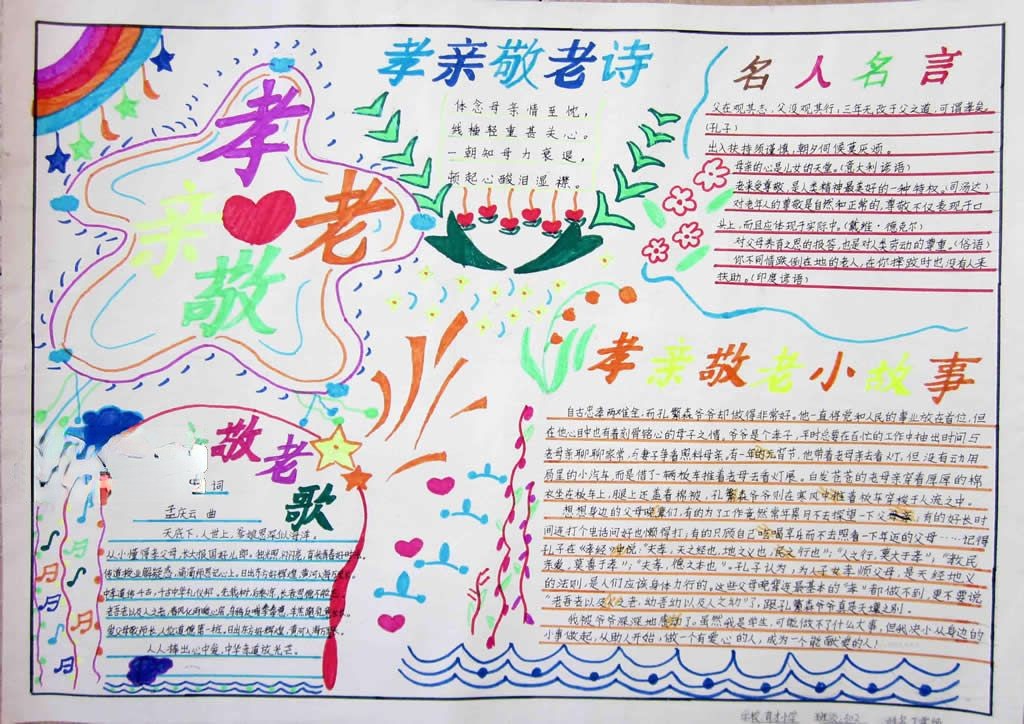 孝
亲
敬
老
孝亲敬老诗
体念母亲情至忱，
线柚轻重甚关心。
一朝知母力衰退，
顿起心酸泪湿襟。
名人名言
父在观其志，父没观其行，三年无改于父之道，可谓孝矣。
(孔子)
出入扶持须谨慎，朝夕伺候莫厌烦。
母亲的心是儿女的天堂。(意大利谚语)
老来受尊敬，是人类精神最美好的一种特权。(司汤达)
对老年人的尊敬是自然和正常的，尊敬不仅表现于口
头上，而且应体现于实际中。(戴维·德克尔)
对父母养育之恩的报答，也是对人类劳动的尊重。(俗语)
你不同情跌倒在地的老人，在你摔跤时也没有人来
扶助。(印度谚语)
孝亲敬老小故事
自古忠孝两难全，而孔繁森爷爷却做得非常好。他一直将党和人民的事业放在首位，但
在他心目中也有着刻骨铭心的母子之情。爷爷是个孝子，平时总要在百忙的工作中抽出时间与
老母亲聊聊家常，与妻子争着照料母亲，有一年的元宵节，他带着老母亲去看灯，但没有动用
局里的小汽车，而是借了一辆板车推着老母去看灯展。白发苍苍的老母亲穿着厚厚的棉
衣坐在板车上，腿上还盖着棉被，孔繁森爷爷则在寒风中推着板车穿梭于人流之中。
想想身边的父母晚辈们，有的为了工作竟然常年累月不去探望一下父母亲；有的好长时
间连打个电话问好也懒得打；有的只顾自己吃喝享乐而不去照看一下年迈的父母……记得
孔子在《孝经》中说，"夫孝，天之经也，地之义也，民之行也"；"人之行，莫大于孝"，"教民
亲爱，莫善于孝"；"夫孝，德之本也"。孔子认为，为人子女孝师父母，是天经地义
的法则，是人们应该身体力行的，这些父母晚辈连最基本的"孝"都做不到，更不要说
"老吾老以及人之老，幼吾幼以及人之幼"了，跟孔繁森爷爷真是天壤之别。
我被爷爷深深地感动了。虽然我是学生，可能做不了什么大事，但我决心从身边的
小事做起，从助人开始，做一个有爱心的人，成为一个能献爱的人！
敬老歌
词
孟庆云 曲
天底下，人世上，爹娘恩深似海洋。
从小懂得孝父母，长大报国好儿郎。
传道授业解疑惑，
中华道德千古
老吾老以及人之老，
爱父母敬师长
人人捧出心中爱，中华孝道放光芒。
学校
班级
姓名